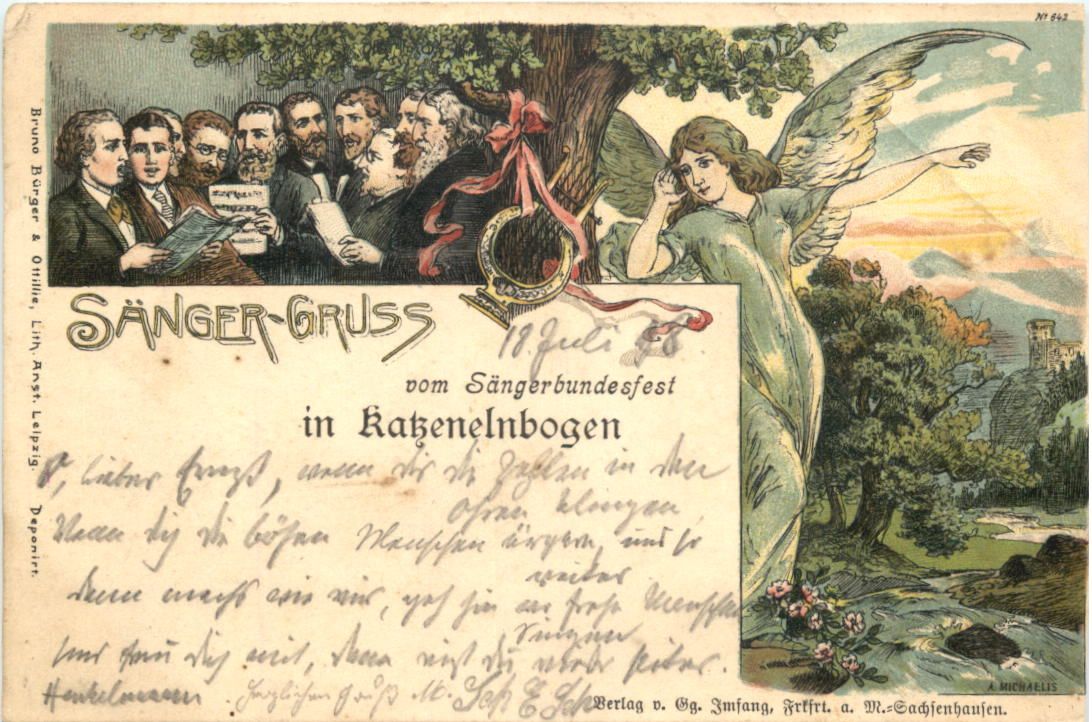 No 642
Bruno Bürger & Ottillie, Lith. Anst. Leipzig. Deponirt.
SÄNGER-GRUSS
18. Juli
vom Sängerbundesfest
in Katzenelnbogen
O, lieber Ernst, wenn dir die Zahlen in den
Ohren klingen
Wenn dich die bösen Menschen ärgern, und so
weiter
dann machs wie wir, geh hin wo frohe Menschen
singen
und freu dich mit, dann wirst du wieder heiter.
Henkelmann Herzlichen Gruß M.
A. MICHAELIS
Verlag v. Gg. Imfang, Frkfrt. a. M.-Sachsenhausen.